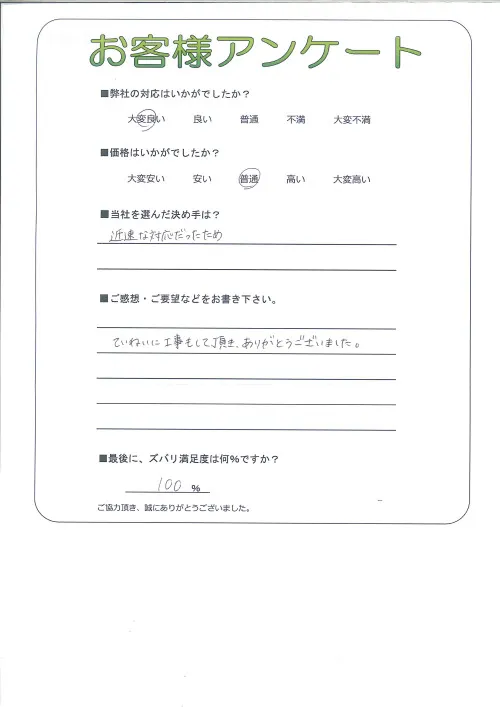 お客様アンケート
■弊社の対応はいかがでしたか？
大変良い 良い 普通 不満 大変不満
■価格はいかがでしたか？
大変安い 安い 普通 高い 大変高い
■当社を選んだ決め手は？
迅速な対応だったため
■ご感想・ご要望などをお書き下さい。
ていねいに工事もして頂き、ありがとうございました。
■最後に、ズバリ満足度は何%ですか？
100 %
ご協力頂き、誠にありがとうございました。